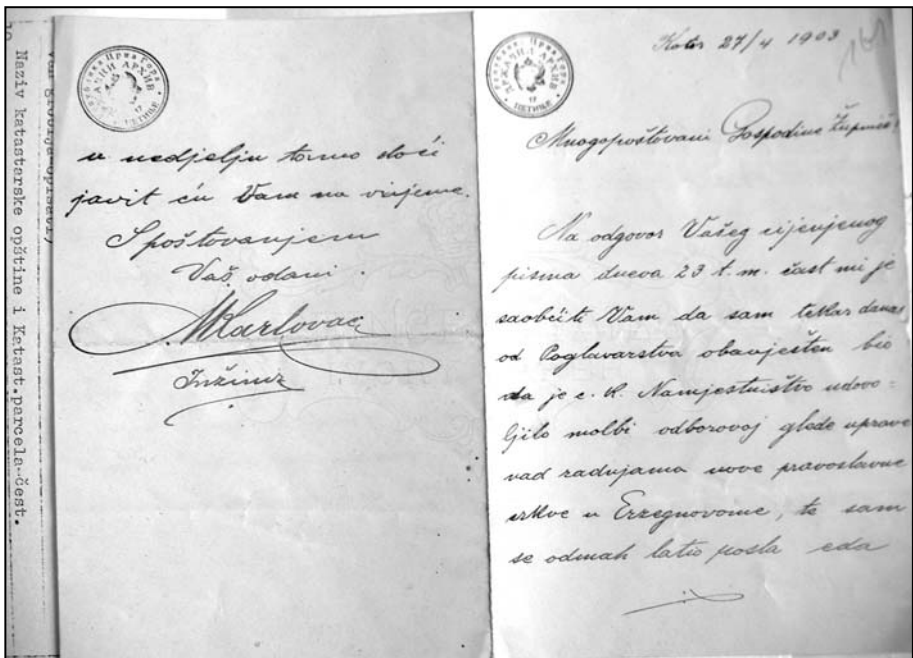 Naziv katastarske opštine i Katast.parcela-čest.
Република Црна Гора
ДРЖАВНИ АРХИВ
ЦЕТИЊЕ
u nedjelju tamo doći
javit ću Vam na vrijeme.
S poštovanjem
Vaš odani
MKarlovac
Inžinir
Република Црна Гора
ДРЖАВНИ АРХИВ
ЦЕТИЊЕ
Kotor 27/4 1903
161
Mnogopoštovani Gospodine
Na odgovor Vašeg cijenjenog
pisma dneva 23 t. m. čast mi je
saobćiti Vam da sam tekar danas
od Poglavarstva obavješten bio
da je c. k. Namjestništvo udovo=
ljilo molbi odborovoj glede uprave
nad radnjama nove pravoslavne
crkve u Erzegnovome, te sam
se odmah latio posla eda